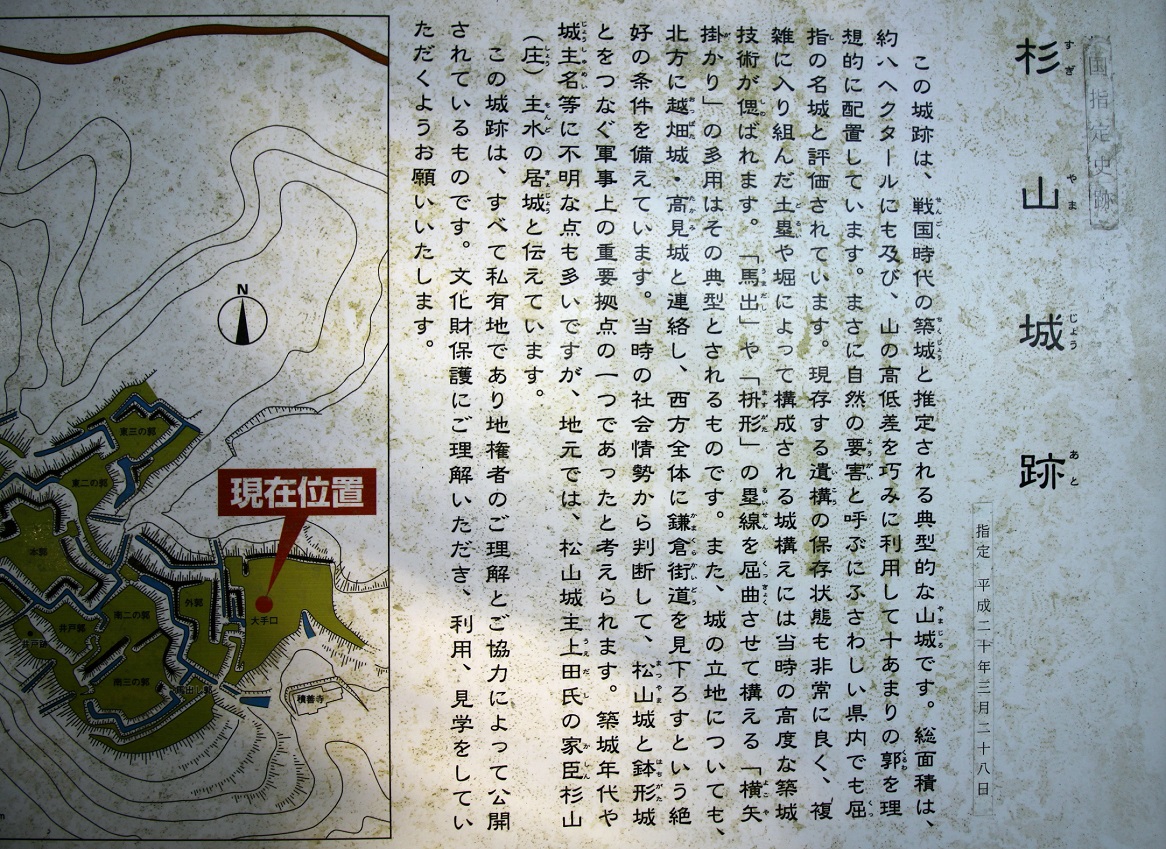 国指定史跡
杉山城跡
すぎ やま じょう あと
指定 平成二十年三月二十八日
この城跡は、戦国時代の築城と推定される典型的な山城です。総面積は、
約八ヘクタールにも及び、山の高低差を巧みに利用して十あまりの郭を理
想的に配置しています。まさに自然の要害と呼ぶにふさわしい県内でも屈
指の名城と評価されています。現存する遺構の保存状態も非常に良く、複
雑に入り組んだ土塁や堀によって構成される城構えには当時の高度な築城
技術が偲ばれます。「馬出」や「枡形」の塁線を屈曲させて構える「横矢
掛かり」の多用はその典型とされるものです。また、城の立地についても、
北方に越畑城・高見城と連絡し、西方全体に鎌倉街道を見下ろすという絶
好の条件を備えています。当時の社会情勢から判断して、松山城と鉢形城
とをつなぐ軍事上の重要拠点の一つであったと考えられます。築城年代や
城主名等に不明な点も多いですが、地元では、松山城主上田氏の家臣杉山
(庄)主水の居城と伝えています。
この城跡は、すべて私有地であり地権者のご理解とご協力によって公開
されているものです。文化財保護にご理解いただき、利用、見学をしてい
ただくようお願いいたします。
N
現在位置
東三の郭
東二の郭
本郭
外郭
大手口
南二の郭
井戸郭
井戸跡
南三の郭
馬出し郭
積善寺
m